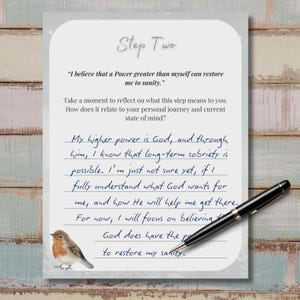 Step Two
"I believe that a Power greater than myself can restore
me to sanity."
Take a moment to reflect on what this step means to you.
How does it relate to your personal journey and current
state of mind?
My higher power is God, and through
him, I know that long-term sobriety is
possible. I'm just not sure yet, if I
fully understand what God wants for
me, and how He will help me get there.
For now, I will focus on believing
God does have the
to restore my sanity.